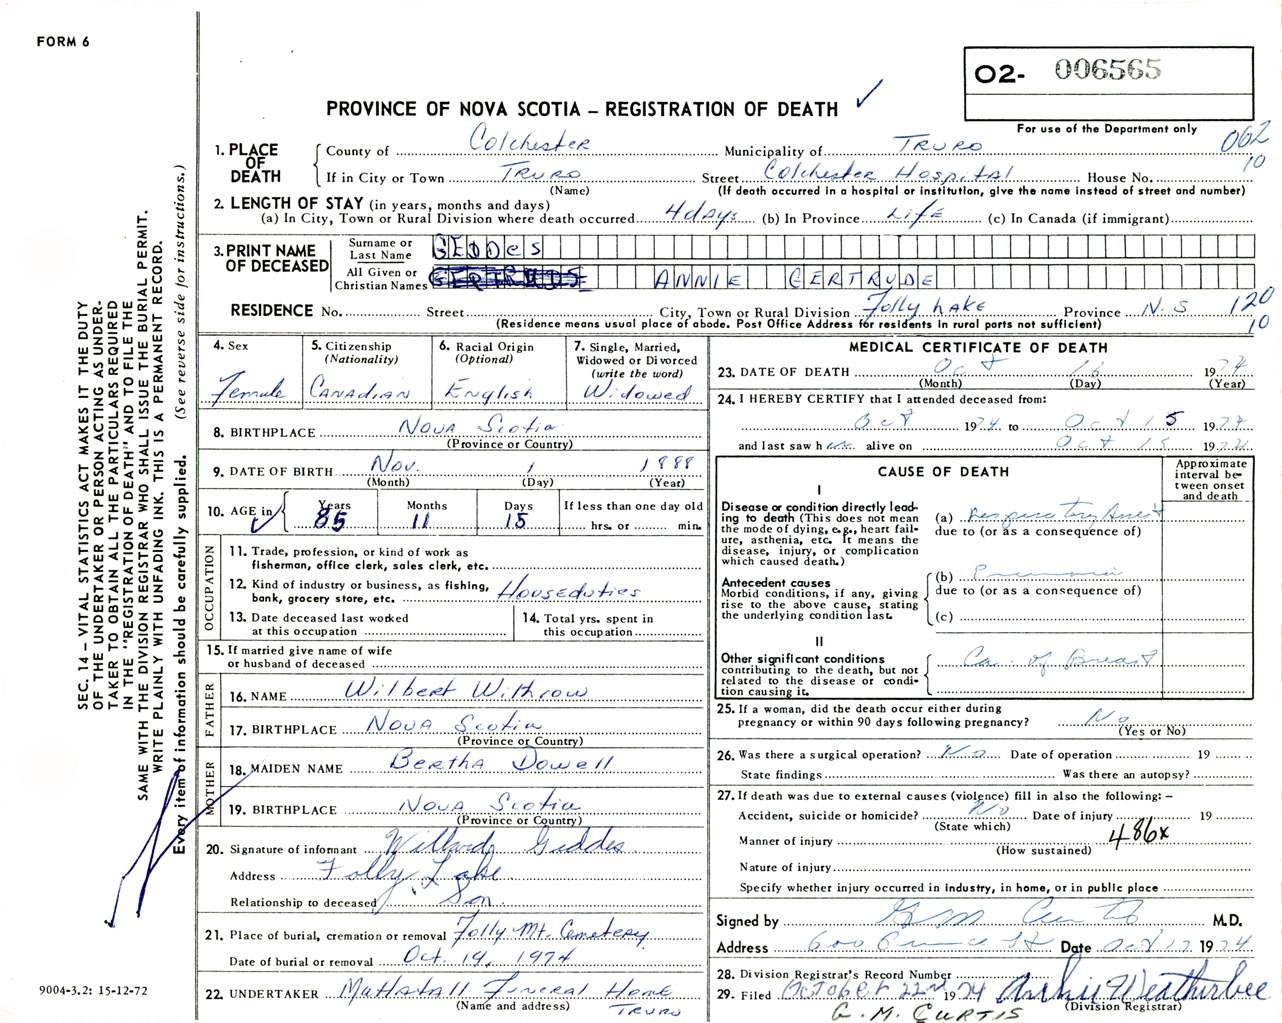 FORM 6
O2- 006565
PROVINCE OF NOVA SCOTIA – REGISTRATION OF DEATH ✓
For use of the Department only
062
10
1. PLACE OF DEATH
County of Colchester Municipality of TRURO
If in City or Town TRURO Street Colchester Hospital House No.
(Name) (If death occurred in a hospital or institution, give the name instead of street and number)
2. LENGTH OF STAY (in years, months and days)
(a) In City, Town or Rural Division where death occurred 4 days (b) In Province Life (c) In Canada (if immigrant)
3. PRINT NAME OF DECEASED
Surname or Last Name GEDDES
All Given or Christian Names GERTRUDE ANNIE GERTRUDE
RESIDENCE No. Street City, Town or Rural Division Folly Lake Province N.S 120
(Residence means usual place of abode. Post Office Address for residents in rural parts not sufficient) 10
4. Sex Female
5. Citizenship (Nationality) Canadian
6. Racial Origin (Optional) English
7. Single, Married, Widowed or Divorced (write the word) Widowed
8. BIRTHPLACE Nova Scotia
(Province or Country)
9. DATE OF BIRTH Nov. 1 1888
(Month) (Day) (Year)
10. AGE in ✓ Years 85 Months 11 Days 15 If less than one day old hrs. or min.
OCCUPATION
11. Trade, profession, or kind of work as fisherman, office clerk, sales clerk, etc.
12. Kind of industry or business, as fishing, bank, grocery store, etc. Houseduties
13. Date deceased last worked at this occupation
14. Total yrs. spent in this occupation
15. If married give name of wife or husband of deceased
FATHER
16. NAME Wilbert Withrow
17. BIRTHPLACE Nova Scotia
(Province or Country)
MOTHER
18. MAIDEN NAME Bertha Dowell
19. BIRTHPLACE Nova Scotia
(Province or Country)
20. Signature of informant Willard Geddes
Address Folly Lake
Relationship to deceased Son
21. Place of burial, cremation or removal Folly Mt. Cemetery
Date of burial or removal Oct. 19, 1974
22. UNDERTAKER Mattatall Funeral Home
(Name and address) TRURO
MEDICAL CERTIFICATE OF DEATH
23. DATE OF DEATH Oct 16 1974
(Month) (Day) (Year)
24. I HEREBY CERTIFY that I attended deceased from:
Oct 1974 to Oct 15 1974
and last saw her alive on Oct 15 1974
CAUSE OF DEATH
Approximate interval between onset and death
I
Disease or condition directly leading to death (This does not mean the mode of dying, e.g., heart failure, asthenia, etc. It means the disease, injury, or complication which caused death.)
(a) Respiratory Arrest
due to (or as a consequence of)
Antecedent causes
Morbid conditions, if any, giving rise to the above cause, stating the underlying condition last.
(b) Pneumonia
due to (or as a consequence of)
(c)
II
Other significant conditions contributing to the death, but not related to the disease or condition causing it.
Ca. of Breast
25. If a woman, did the death occur either during pregnancy or within 90 days following pregnancy? No
(Yes or No)
26. Was there a surgical operation? No Date of operation 19
State findings Was there an autopsy?
27. If death was due to external causes (violence) fill in also the following: –
Accident, suicide or homicide? No Date of injury 19
(State which)
Manner of injury 486x
(How sustained)
Nature of injury
Specify whether injury occurred in industry, in home, or in public place
Signed by G M Curtis M.D.
Address 600 Prince St Date Oct 17 1974
28. Division Registrar's Record Number
29. Filed October 22nd 1974 Archie Weatherbee
(Division Registrar)
G. M. CURTIS
SEC. 14 – VITAL STATISTICS ACT MAKES IT THE DUTY
OF THE UNDERTAKER OR PERSON ACTING AS UNDER-
TAKER TO OBTAIN ALL THE PARTICULARS REQUIRED
IN THE "REGISTRATION OF DEATH" AND TO FILE THE
SAME WITH THE DIVISION REGISTRAR WHO SHALL ISSUE THE BURIAL PERMIT.
WRITE PLAINLY WITH UNFADING INK. THIS IS A PERMANENT RECORD.
Every item of information should be carefully supplied. (See reverse side for instructions.)
9004-3.2: 15-12-72